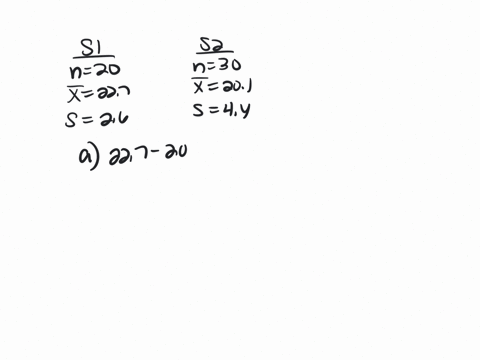 S1
n=20
x̄=22.7
s=2.6
S2
n=30
x̄=20.1
s=4.4
a) 22.7-20